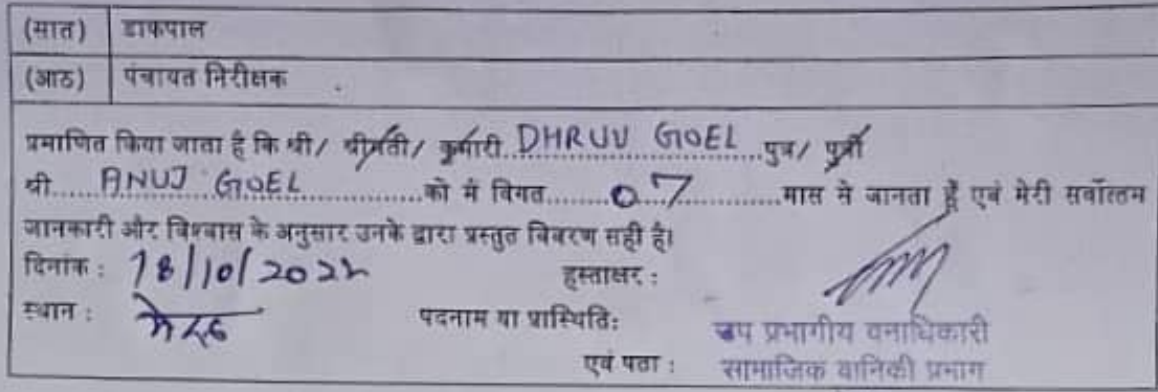 (सात) डाकपाल
(आठ) पंचायत निरीक्षक
प्रमाणित किया जाता है कि श्री/ श्रीमती/ कुमारी DHRUV GOEL पुत्र/ पुत्री
श्री ANUJ GOEL को मैं विगत 07 मास से जानता हूँ एवं मेरी सर्वोत्तम
जानकारी और विश्वास के अनुसार उनके द्वारा प्रस्तुत विवरण सही है।
दिनांक : 18/10/2022
हस्ताक्षर :
स्थान : मेरठ
पदनाम या प्रास्थिति:
उप प्रभागीय वनाधिकारी
एवं पता :
सामाजिक वानिकी प्रभाग